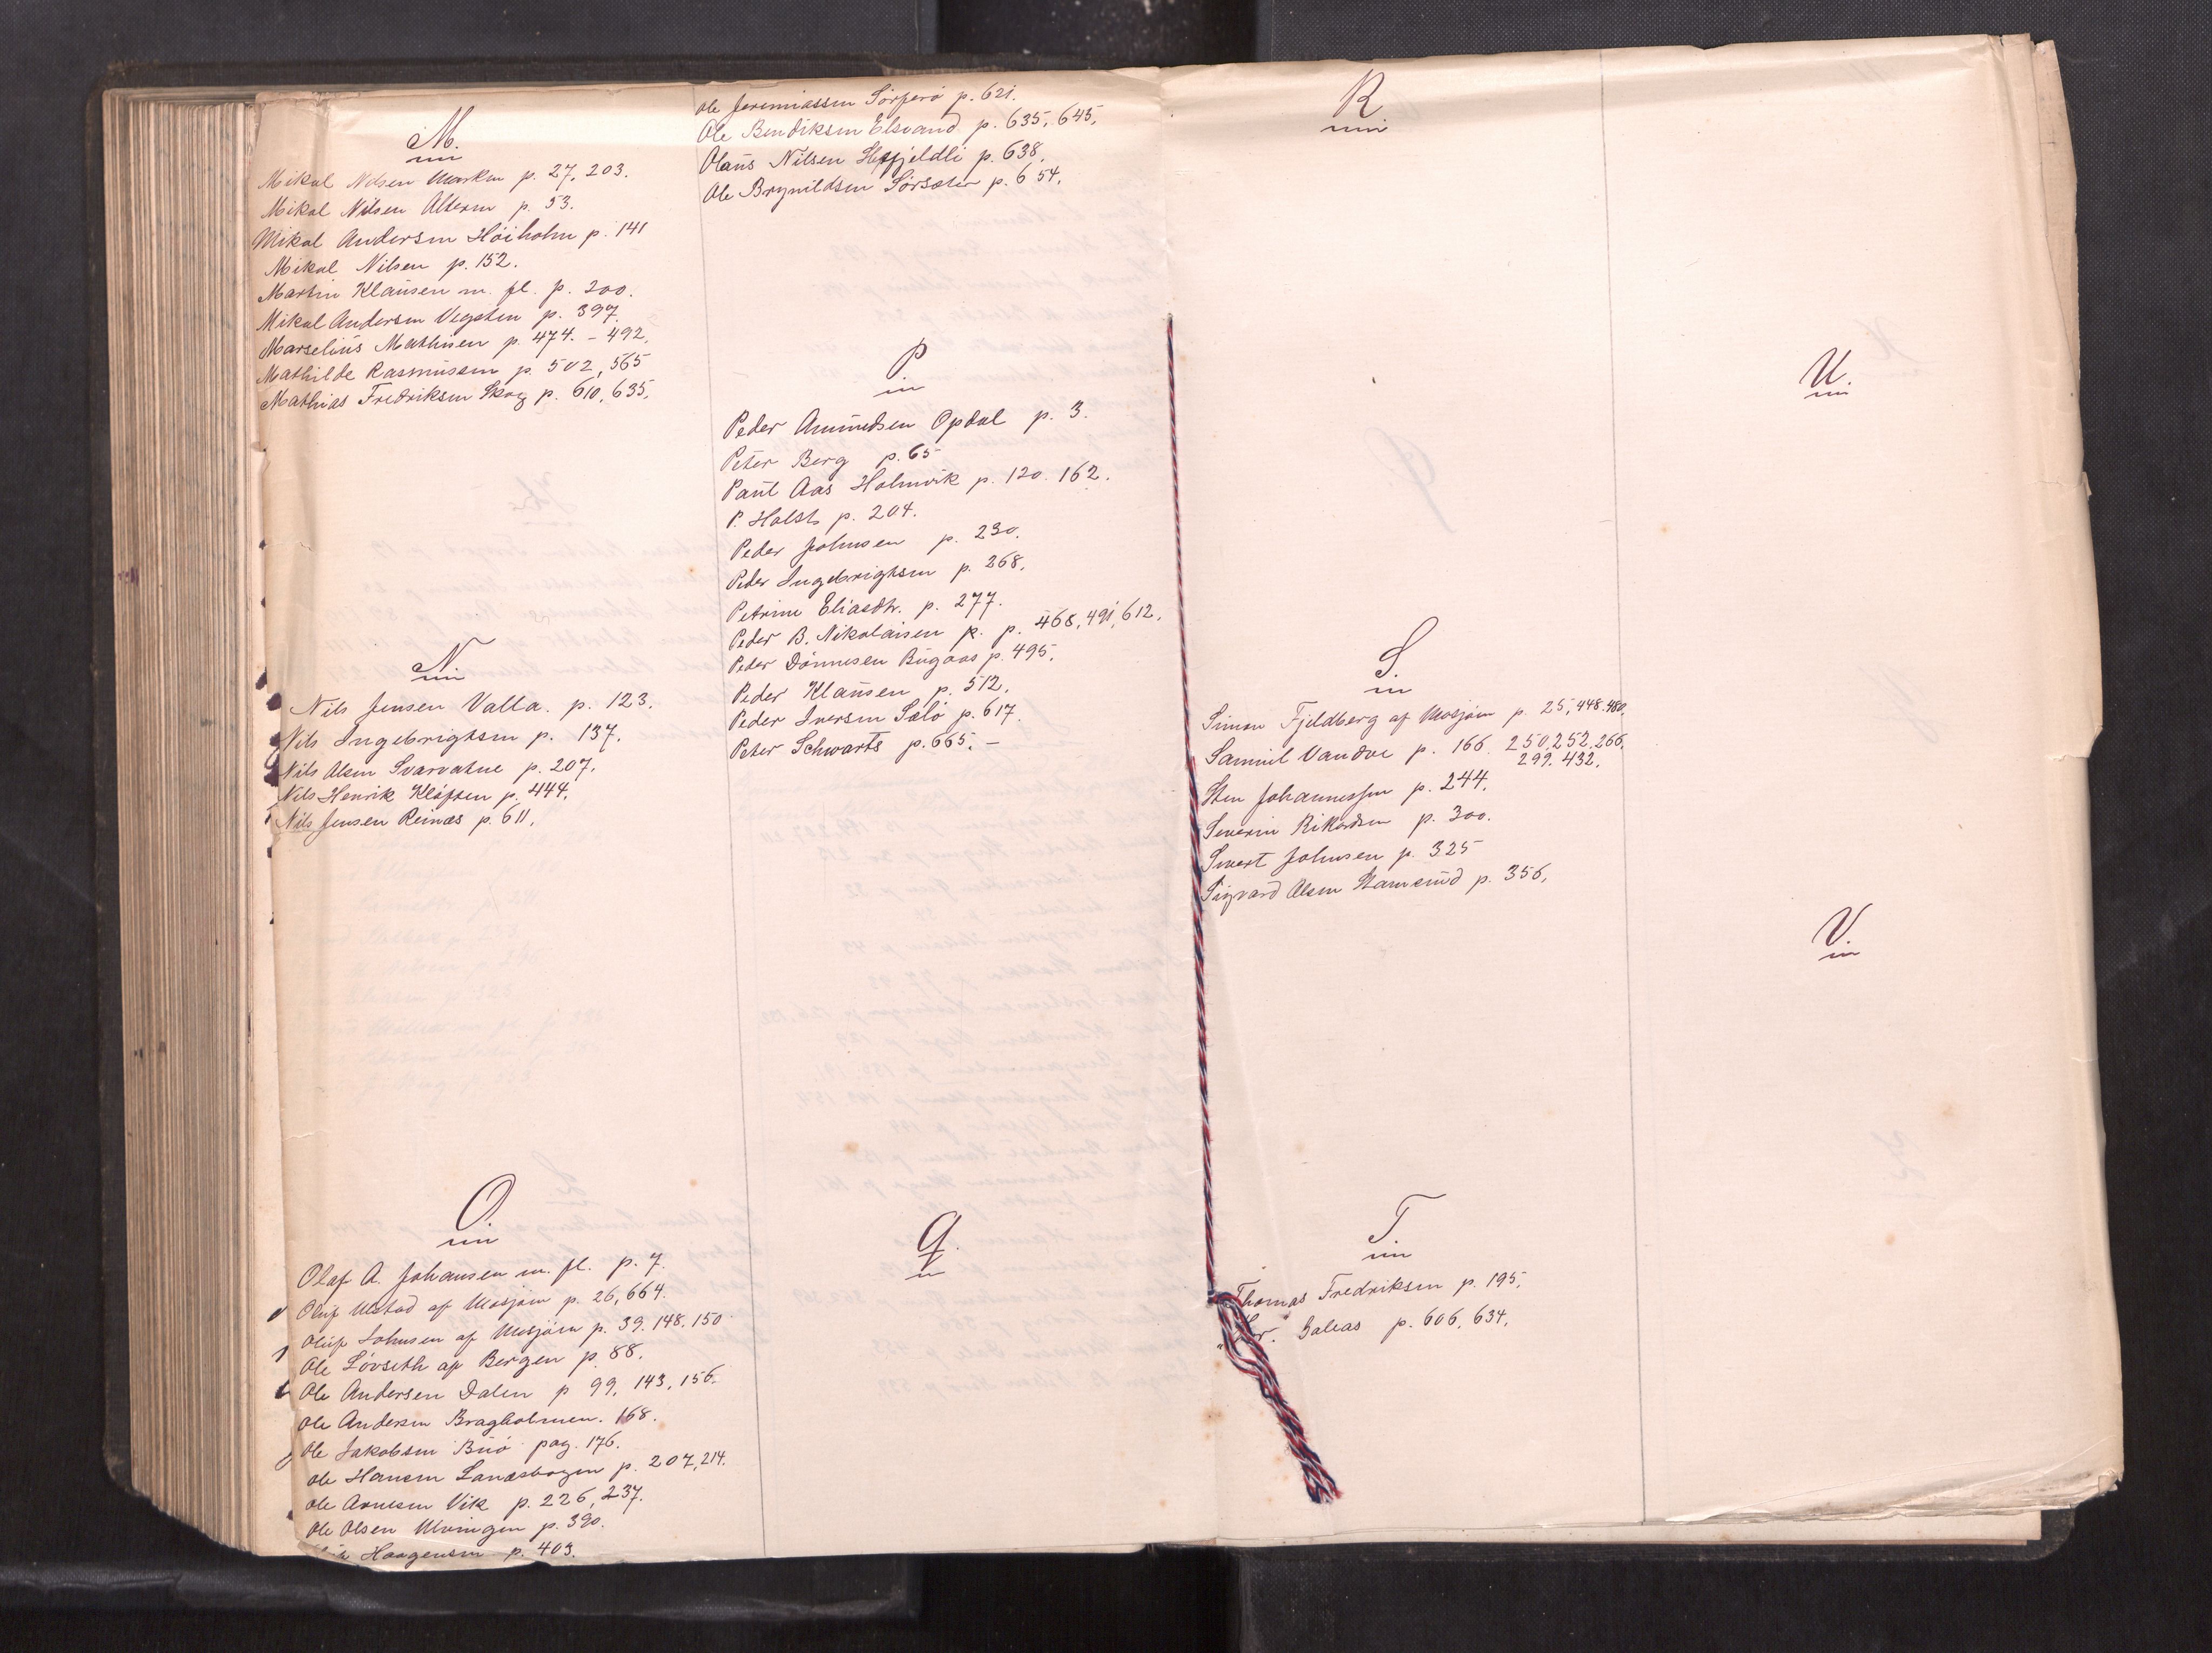 M.
Mikal Nilsen Marken p. 27, 203.
Mikal Nilsen Alteren p. 53.
Mikal Andersen Höiholm p. 141
Mikal Nilsen p. 152.
Martin Klausen m. fl. p. 200.
Mikal Andersen Vegsten p. 397.
Marselius Mathisen p. 474. - 492.
Mathilde Rasmussen p. 502, 565
Mathias Fredriksen Skog p. 610, 635.
N.
Nils Jensen Valla. p. 123.
Nils Ingebrigtsen p. 137.
Nils Alsen Svarvatne p. 207.
Nils Henrik Klöften p. 444.
Nils Jensen Reinas p. 611.
O.
Olaf A. Johansen m. fl. p. 7.
Oluf Ulstad af Mosjøen p. 26, 664.
Oluf Johnsen af Mosjøen p. 39. 148. 150.
Ole Lövseth af Bergen p. 88.
Ole Andersen Dalen p 99, 143, 156.
Ole Andersen Bragholmen. 168.
Ole Jakobsen Buö pag. 176.
Ole Hansen p. 207, 214.
Ole Arnesen Vik p. 226, 237.
Ole Olsen Ulvingen p. 390.
Haagensen p. 403.
Ole Jeremiassen Sörferö p. 621.
Ole Bendiksen Elsvand p. 635, 645.
Olaus Nilsen p. 638.
Ole Brynildsen Sörsæter p. 654.
P
Peder Amundsen Opdal p. 3.
Peter Berg p. 65
Paul Aas Holmvik p. 120. 162.
P. Holst p. 204.
Peder Johnsen p. 230.
Peder Ingebrigtsen p. 268.
Petrine Eliasdtr. p. 277.
Peder B. Nikolaisen p. p. 468, 491, 612.
Peder Dönnesen Bugaas p. 495.
Peder Klausen p. 512.
Peder Iversen Sælö p. 617.
Peter Schwarts p. 665. -
Q.
R
S.
Simon Fjeldberg af Mosjøen p. 25, 448. 480.
Samuel Vandve p. 166. 250, 252. 266.
299. 432.
Sten Johannessen p. 244.
Severin Rikardsen p. 300.
Sivert Johnsen p. 325
Sigvard Olsen Stamsund p. 356.
T.
Thomas Fredriksen p. 195.
Thr. Baleas p. 606, 634.
U.
V.